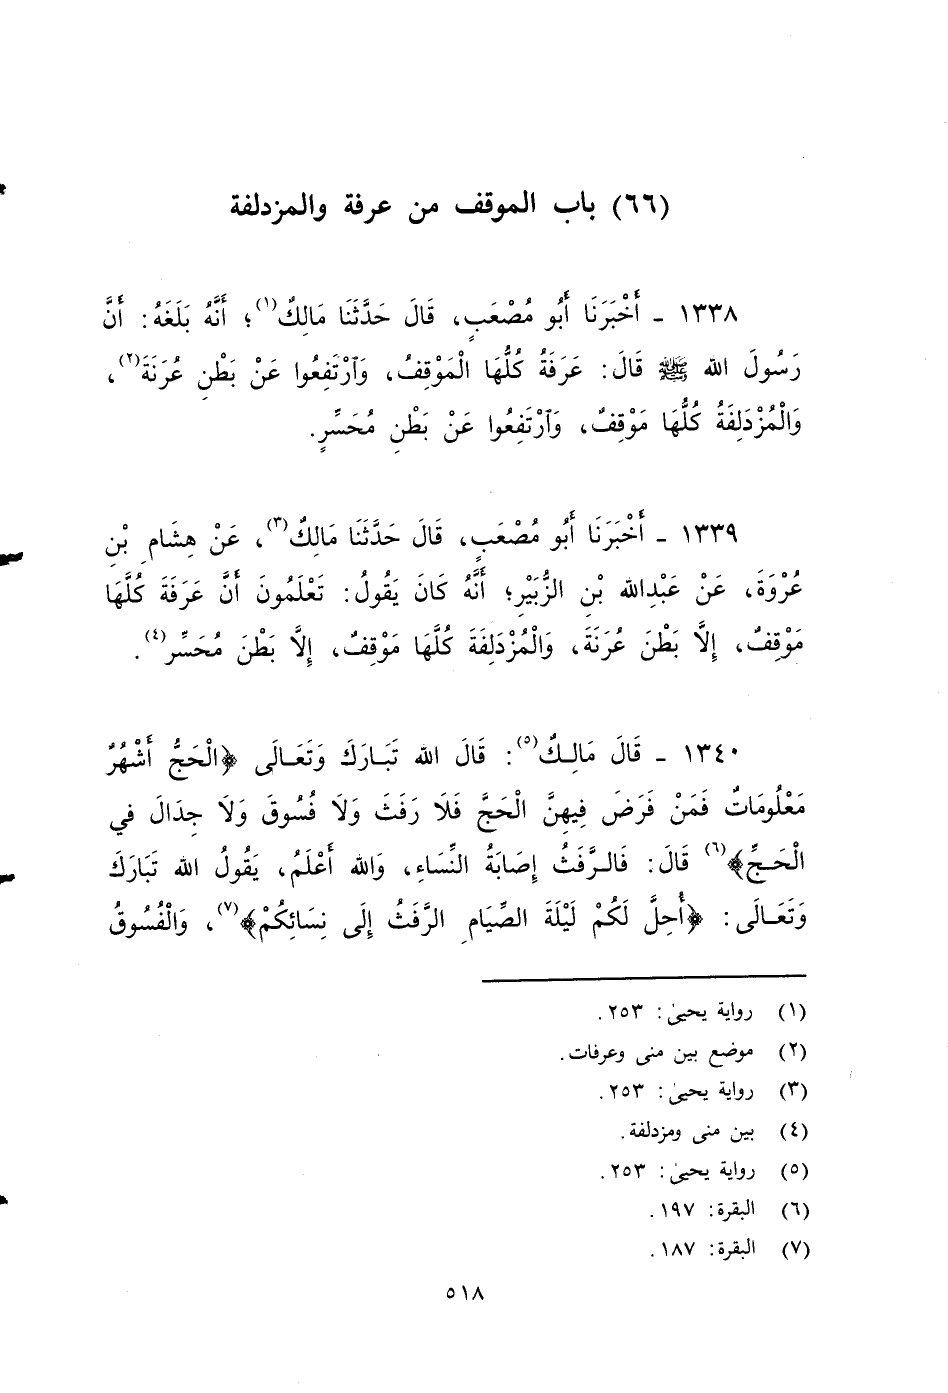 (٦٦) باب الموقف من عرفة والمزدلفة
١٣٣٨ - أَخْبَرَنَا أَبُو مُصْعَبٍ، قَالَ حَدَّثَنَا مَالِكٌ(١)؛ أَنَّهُ بَلَغَهُ: أَنَّ
رَسُولَ الله ﷺ قَالَ: عَرَفَةُ كُلُّهَا الْمَوْقِفُ، وَٱرْتَفِعُوا عَنْ بَطْنِ عُرَنَةَ(٢)،
وَالْمُزْدَلِفَةُ كُلُّهَا مَوْقِفٌ، وَٱرْتَفِعُوا عَنْ بَطْنِ مُحَسِّرٍ.
١٣٣٩ - أَخْبَرَنَا أَبُو مُصْعَبٍ، قَالَ حَدَّثَنَا مَالِكٌ(٣)، عَنْ هِشَامِ بْنِ
عُرْوَةَ، عَنْ عَبْدِالله بْنِ الزُّبَيْرِ؛ أَنَّهُ كَانَ يَقُولُ: تَعْلَمُونَ أَنَّ عَرَفَةَ كُلَّهَا
مَوْقِفٌ، إِلَّا بَطْنَ عُرَنَةَ، وَالْمُزْدَلِفَةَ كُلَّهَا مَوْقِفٌ، إِلَّا بَطْنَ مُحَسِّر(٤).
١٣٤٠ - قَالَ مَالِكٌ(٥): قَالَ الله تَبَارَكَ وَتَعَالَى ﴿الْحَجُّ أَشْهُرٌ
مَعْلُومَاتٌ فَمَنْ فَرَضَ فِيهِنَّ الْحَجَّ فَلَا رَفَثَ وَلَا فُسُوقَ وَلَا جِدَالَ فِي
الْحَجِّ﴾(٦) قَالَ: فَالرَّفَثُ إِصَابَةُ النِّسَاءِ، وَالله أَعْلَمُ، يَقُولُ الله تَبَارَكَ
وَتَعَالَى: ﴿أُحِلَّ لَكُمْ لَيْلَةَ الصِّيَامِ الرَّفَثُ إِلَى نِسَائِكُمْ﴾(٧)، وَالْفُسُوقُ
(١) رواية يحيىٰ: ٢٥٣.
(٢) موضع بين منى وعرفات.
(٣) رواية يحيىٰ: ٢٥٣.
(٤) بين منى ومزدلفة.
(٥) رواية يحيىٰ: ٢٥٣.
(٦) البقرة: ١٩٧.
(٧) البقرة: ١٨٧.
٥١٨